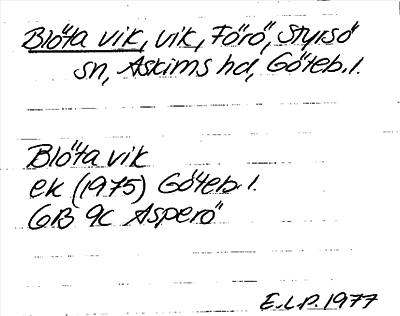 Blöta vik, vik, Förö, Styrsö
sn, Askims hd, Göteb. l.
Blöta vik
ek (1975) Göteb. l.
GB 9c Asperö
E.L.P. 1977